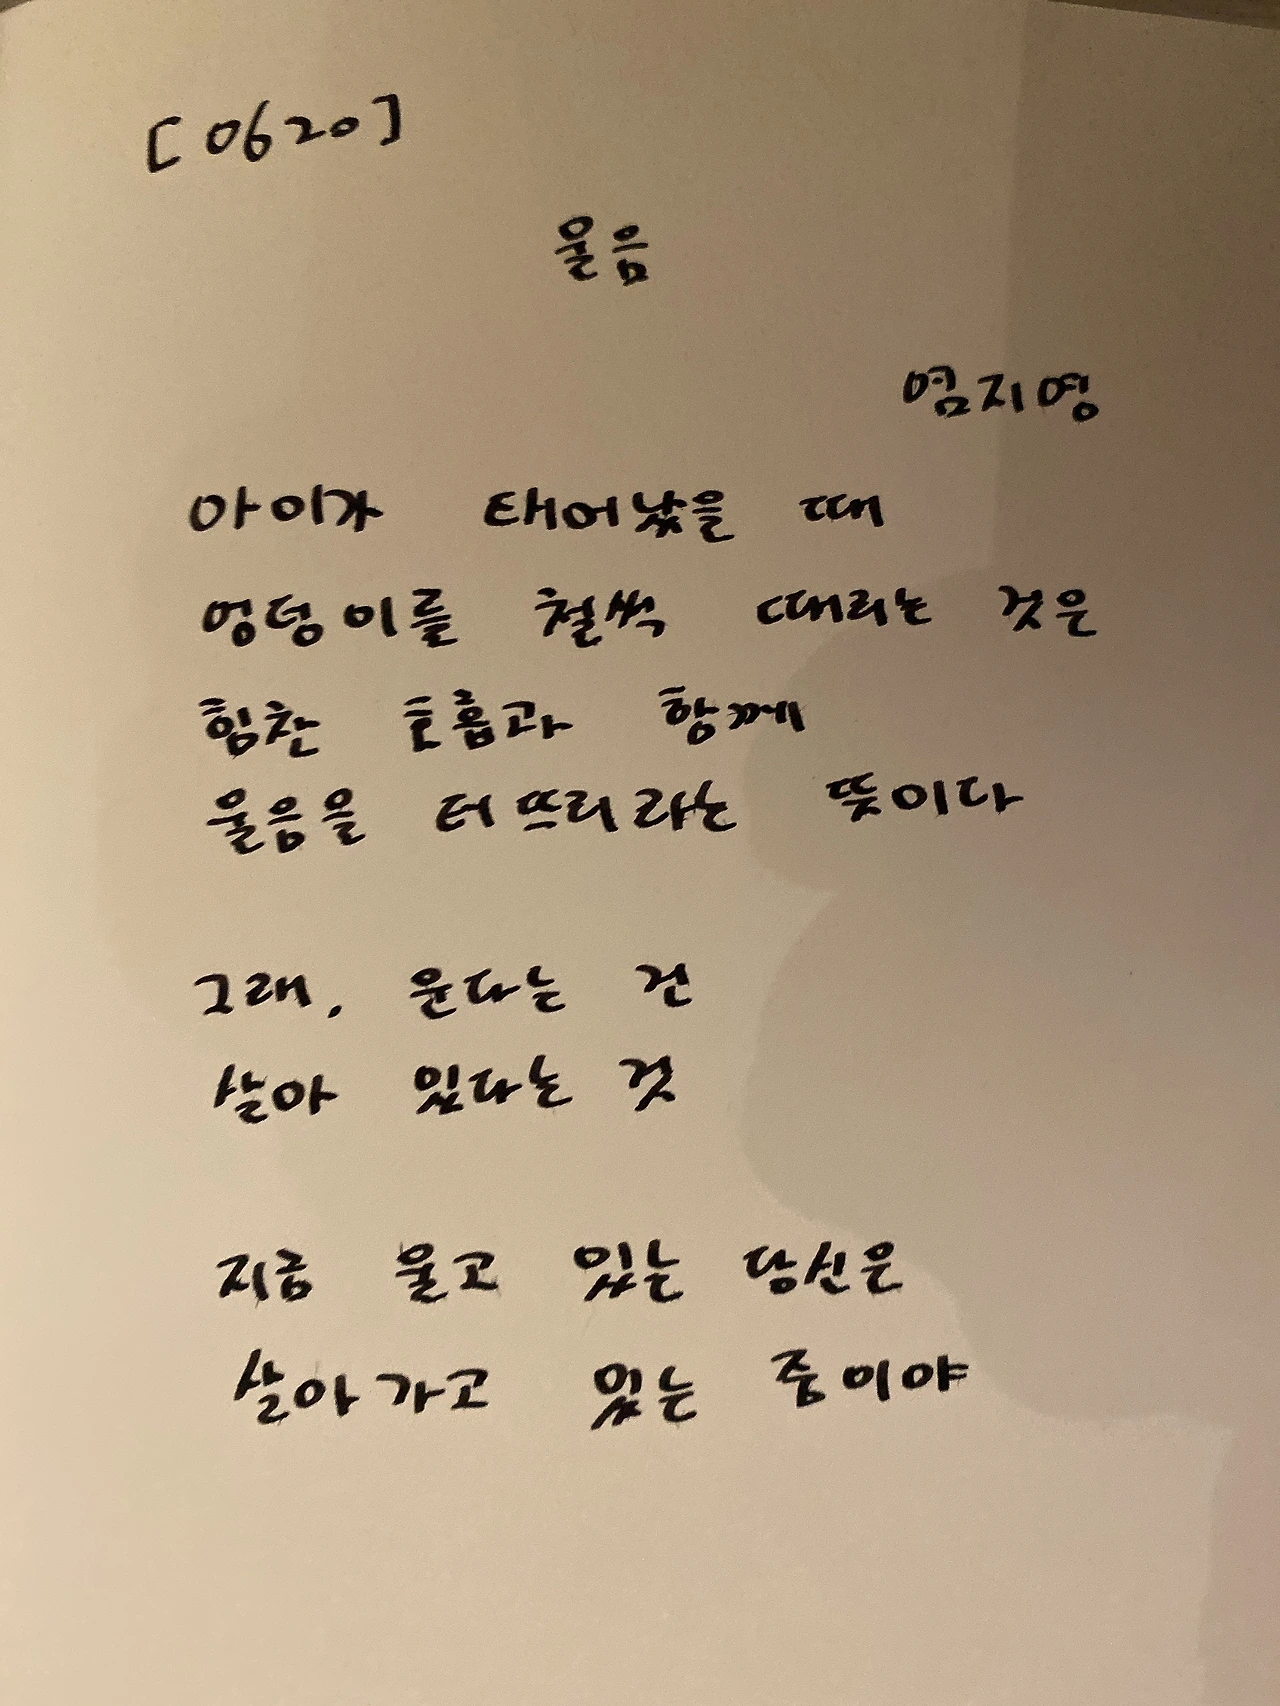 [0620]
울음
염지영
아이가 태어났을 때
엉덩이를 철썩 때리는 것은
힘찬 호흡과 함께
울음을 터뜨리라는 뜻이다
그래, 운다는 건
살아 있다는 것
지금 울고 있는 당신은
살아가고 있는 중이야